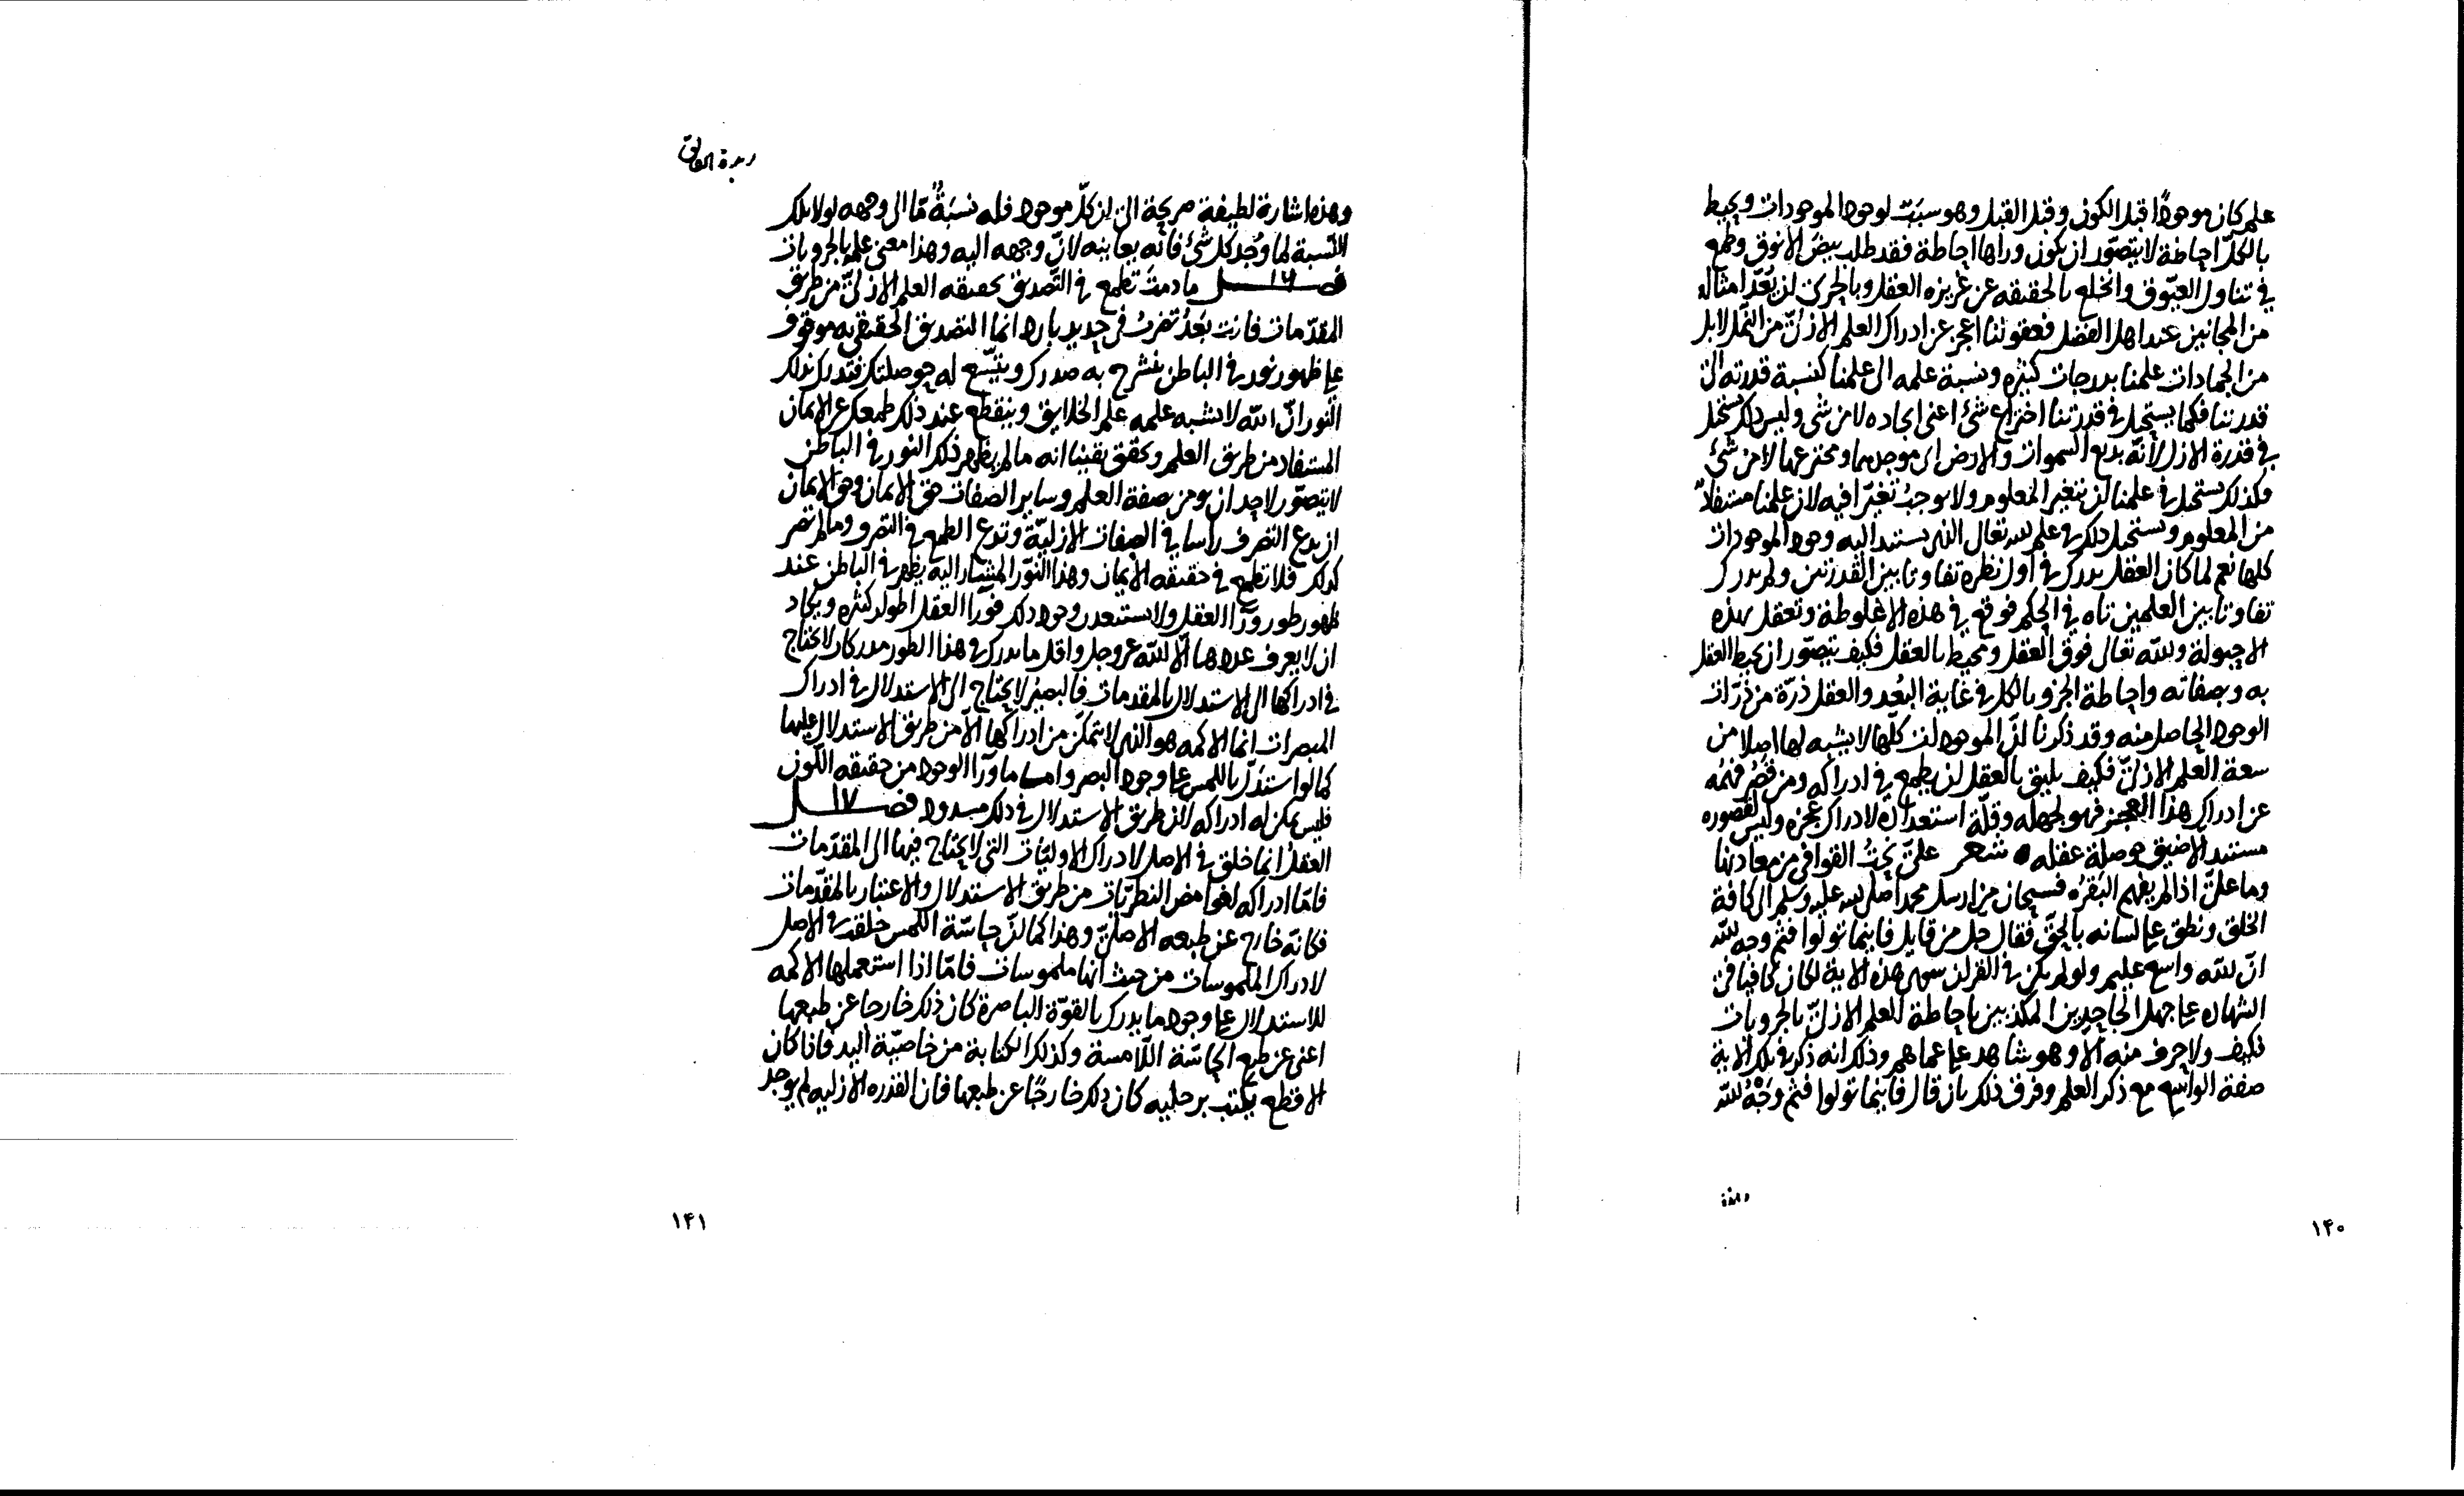 علم كان موجودًا قبل الكون وقبل القبل وهو سبب لوجود الموجودات ويحيط
بالكل احاطة لا يتصور ان يكون وراها احاطة فقد طلب بيض الانوق وطمع
في تناول العيوق وانخلع بالحقيقه عن غريزه العقل وبالحرى ان يعد امثاله
من المجانين عند اهل الفضل فعقولنا اعجز عن ادراك العلم الازلى من النمل لا بل
من الجمادات علمنا بدرجات كثيره ونسبة علمه الى علمنا كنسبة قدرته الى
قدرتنا فكما يستحيل في قدرتنا اختراع شئ اعنى ايجاده لا من شى وليس ذلك يستحيل
في قدرة الازل لانه بديع السموات والارض اى موجدهما ومخترعهما لا من شئ
فكذلك يستحيل في علمنا ان يتغير المعلوم ولا يوجب تغيرا فيه لان علمنا مستفاد
من المعلوم ويستحيل ذلك في علم الله تعالى الذى يستند اليه وجود الموجودات
كلها نعم لما كان العقل يدرك في اول نظره تفاوتا بين القدرتين ولم يدرك
تفاوتا بين العلمين تاه في الحكم فوقع في هذه الاغلوطة وتعقل بهذه
الاحبولة والله تعالى فوق العقل ومحيط بالعقل فكيف يتصور ان يحيط العقل
به وبصفاته واحاطة الجزو بالكل في غاية البعد والعقل ذرة من ذرات
الوجود الحاصل منه وقد ذكرنا ان الموجودات كلها لا نسبة لها اصلا من
سعة العلم الازلى فكيف يليق بالعقل ان يطمع في ادراكه ومن قصر فهمه
عن ادراك هذا العجز فهو لجهله وقلة استعداده لادراك عجزه وليس لقصوره
مستند الا ضيق حوصلة عقله شعر على نحت القوافى من معادنها
وما على اذا لم يفهم البقر فسبحان من ارسل محمدا صلى الله عليه وسلم الى كافة
الخلق ونطق على لسانه بالحق فقال جل من قايل فاينما تولوا فثم وجه الله
ان الله واسع عليم ولو لم يكن في القران سوى هذه الاية لكان كافيا في
الشهاده على جهل الجاحدين المكذبين باحاطة العلم الازلى بالجزويات
فكيف ولا حرف منه الا وهو شاهد على عماهم وذلك انه ذكر في تلك الاية
صفة الواسع مع ذكر العلم وفرق ذلك بان قال فاينما تولوا فثم وجه الله
وهذه
١۴٠
زبدة الحقايق
وهذه اشارة لطيفة صريحة الى ان كل موجود فله نسبة ما الى وجهه لولا تلك
النسبة لما وجد كل شئ فانه يعاينه لان وجهه اليه وهذا معنى علمه بالجزويات
فصل ١٦ ما دمت تطمع في التصديق بحقيقه العلم الازلى من طريق
المقدمات فانت بعد تضرب في حديد بارد انما التصديق الحقيقى به موقوف
على ظهور نور في الباطن ينشرح به صدرك ويتسع له حوصلتك فتدرك بذلك
النور ان الله لا يشبه علمه علم الخلايق وينقطع عند ذلك طمعك عن الايمان
المستفاد من طريق العلم وتحقق يقينا انه ما لم يظهر ذلك النور في الباطن
لا يتصور لاحد ان يومن بصفة العلم وساير الصفات حق الايمان وحق الايمان
ان يدع التصرف راسا في الصفات الازلية وتدع الطمع في التصرف وما لم تصر
كذلك فلا تطمع في حقيقه الايمان وهذا النور المشار اليه يظهر في الباطن عند
ظهور طور ورا العقل ولا يستبعدن وجود ذلك فورا العقل اطوار كثيره ويكاد
ان لا يعرف عددها الا الله عز وجل واقل ما يدرك في هذا الطور مدركات لا يحتاج
في ادراكها الى الاستدلال بالمقدمات فالبصير لا يحتاج الى الاستدلال في ادراك
المبصرات انما الاكمه هو الذى لا يتمكن من ادراكها الا من طريق الاستدلال عليها
كما لو استدل باللمس على وجود البصر واما ما ورا الوجود من حقيقه اللون
فليس يمكن له ادراكه لان طريق الاستدلال في ذلك مسدود فصل ١٧
العقل انما خلق في الاصل لادراك الاوليات التى لا يحتاج فيها الى المقدمات
فاما ادراكه لغوامض النظريات من طريق الاستدلال والاعتبار بالمقدمات
فكانه خارج عن طبعه الاصلى وهذا كما ان حاسة اللمس خلقت في الاصل
لادراك الملموسات من حيث انها ملموسات فاما اذا استعملها الاكمه
للاستدلال على وجود ما يدرك بالقوة الباصرة كان ذلك خارجا عن طبعها
اعنى عن طبع الحاسة اللامسة وكذلك الكتابة من خاصية اليد فاذا كان
الاقطع يكتب برجليه كان ذلك خارجًا عن طبعها فان القدره الازليه لم يوجد
١۴١